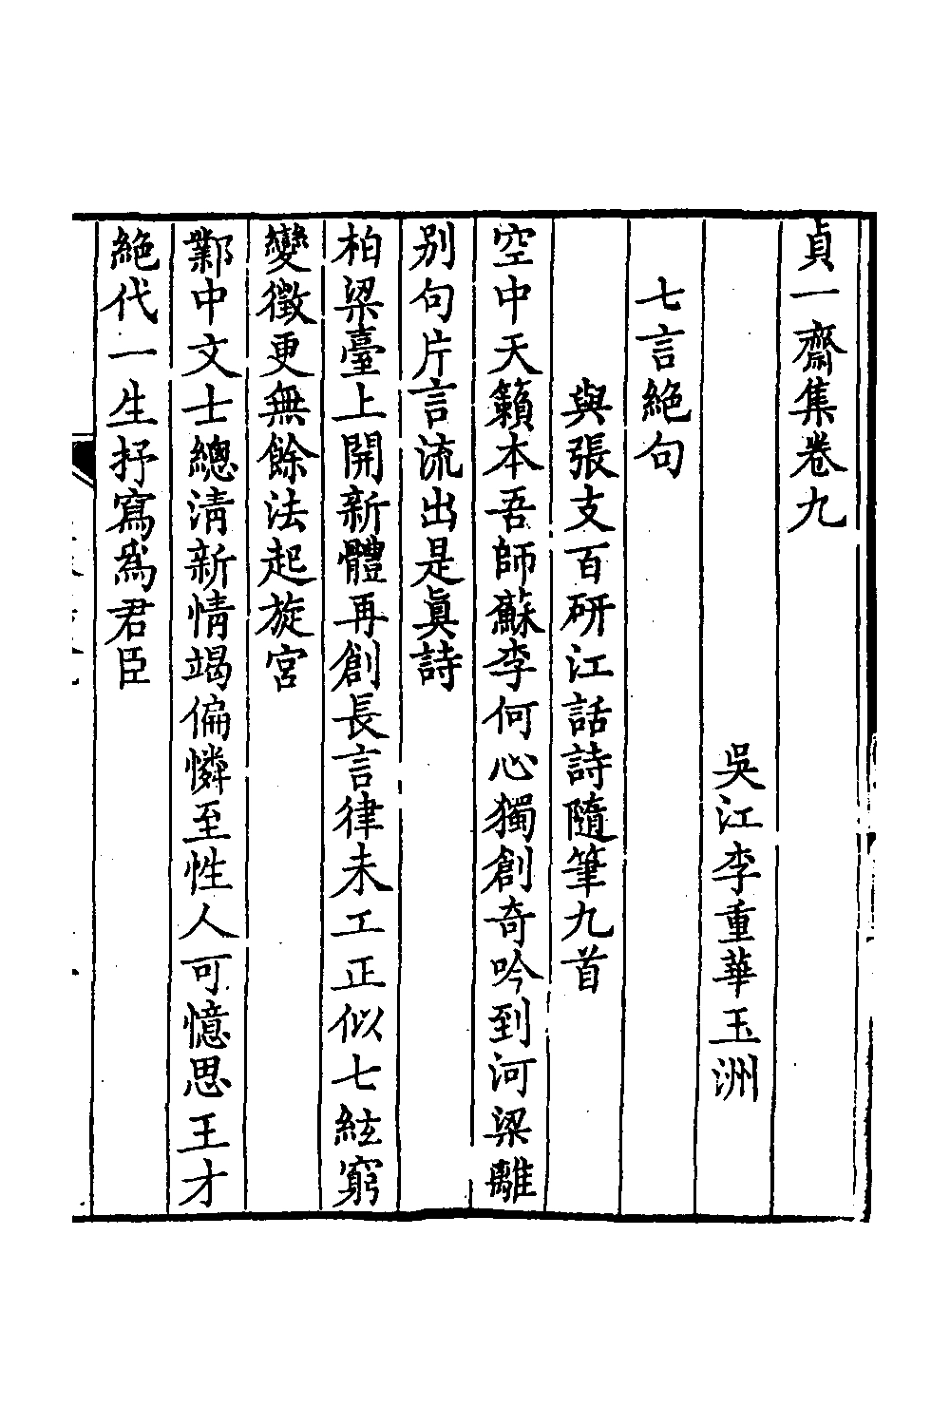 貞一齋集卷九
吳江李重華玉洲
七言絕句
與張支百研江話詩隨筆九首
空中天籟本吾師蘇李何心獨創奇吟到河梁離
別句片言流出是眞詩
柏梁臺上開新體再創長言律未工正似七絃窮
變徵更無餘法起旋宮
鄴中文士總淸新情竭偏憐至性人可憶思王才
絕代一生抒寫爲君臣